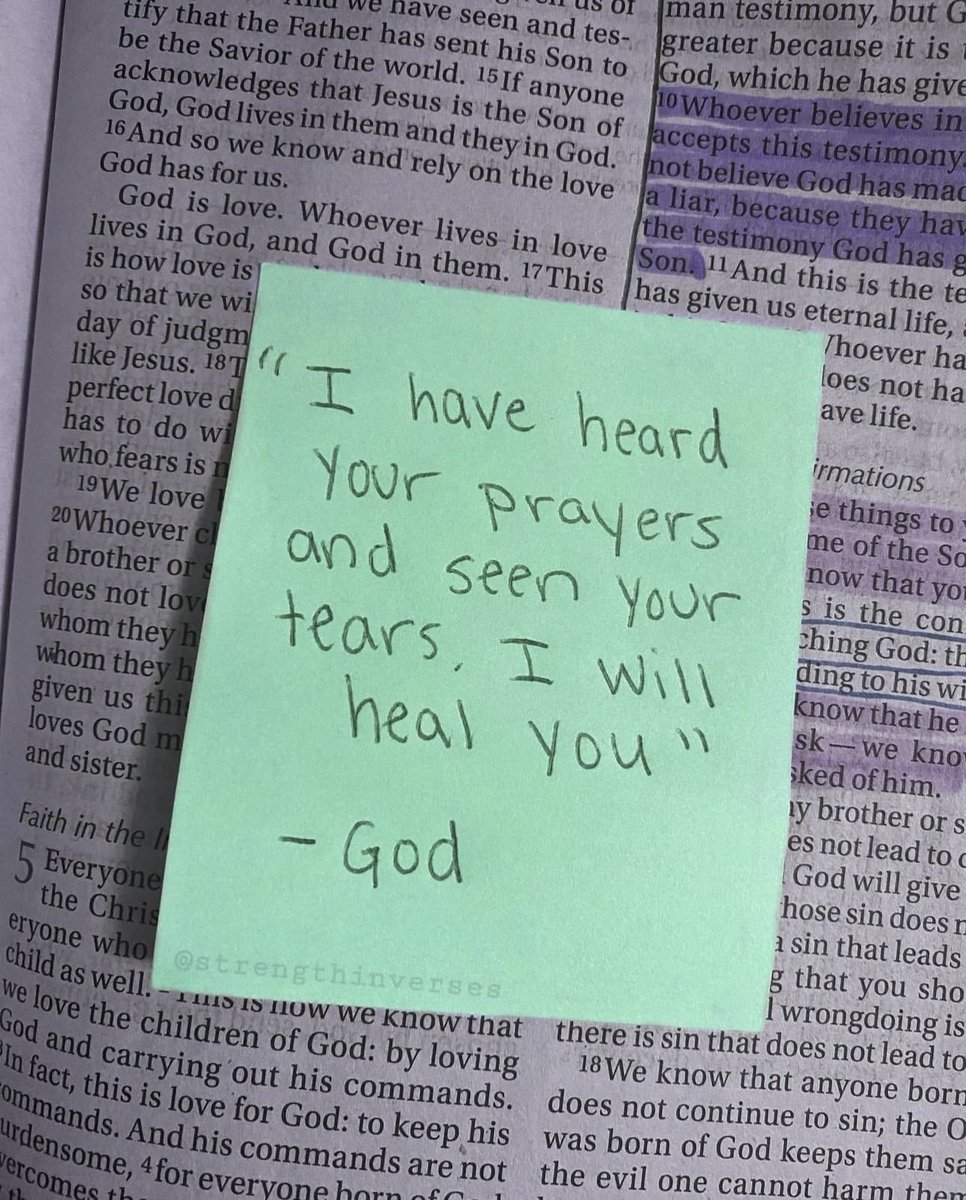 And we have seen and tes-
tify that the Father has sent his Son to
be the Savior of the world. 15 If anyone
acknowledges that Jesus is the Son of
God, God lives in them and they in God.
16 And so we know and rely on the love
God has for us.
God is love. Whoever lives in love
lives in God, and God in them. 17 This
is how love is
so that we wi
day of judgm
like Jesus. 18 T
perfect love d
has to do wi
who fears is n
19 We love
20 Whoever cl
a brother or s
does not lov
whom they h
whom they h
given us this
loves God m
and sister.
Faith in the I
5 Everyone
the Chris
eryone who
child as well. This is how we know that
we love the children of God: by loving
God and carrying out his commands.
3 In fact, this is love for God: to keep his
ommands. And his commands are not
urdensome, 4 for everyone born of God
vercomes
"I have heard
your prayers
and seen your
tears. I will
heal you"
- God
@strengthinverses
man testimony, but G
greater because it is
God, which he has give
10 Whoever believes in
accepts this testimony.
not believe God has mad
a liar, because they hav
the testimony God has g
Son. 11 And this is the te
has given us eternal life,
Whoever ha
does not ha
ave life.
irmations
se things to
me of the So
now that you
s is the con
ching God: th
ding to his wi
know that he
sk—we know
sked of him.
ny brother or s
es not lead to d
God will give
hose sin does n
a sin that leads
g that you sho
l wrongdoing is
there is sin that does not lead to
18 We know that anyone born
does not continue to sin; the O
was born of God keeps them sa
the evil one cannot harm them